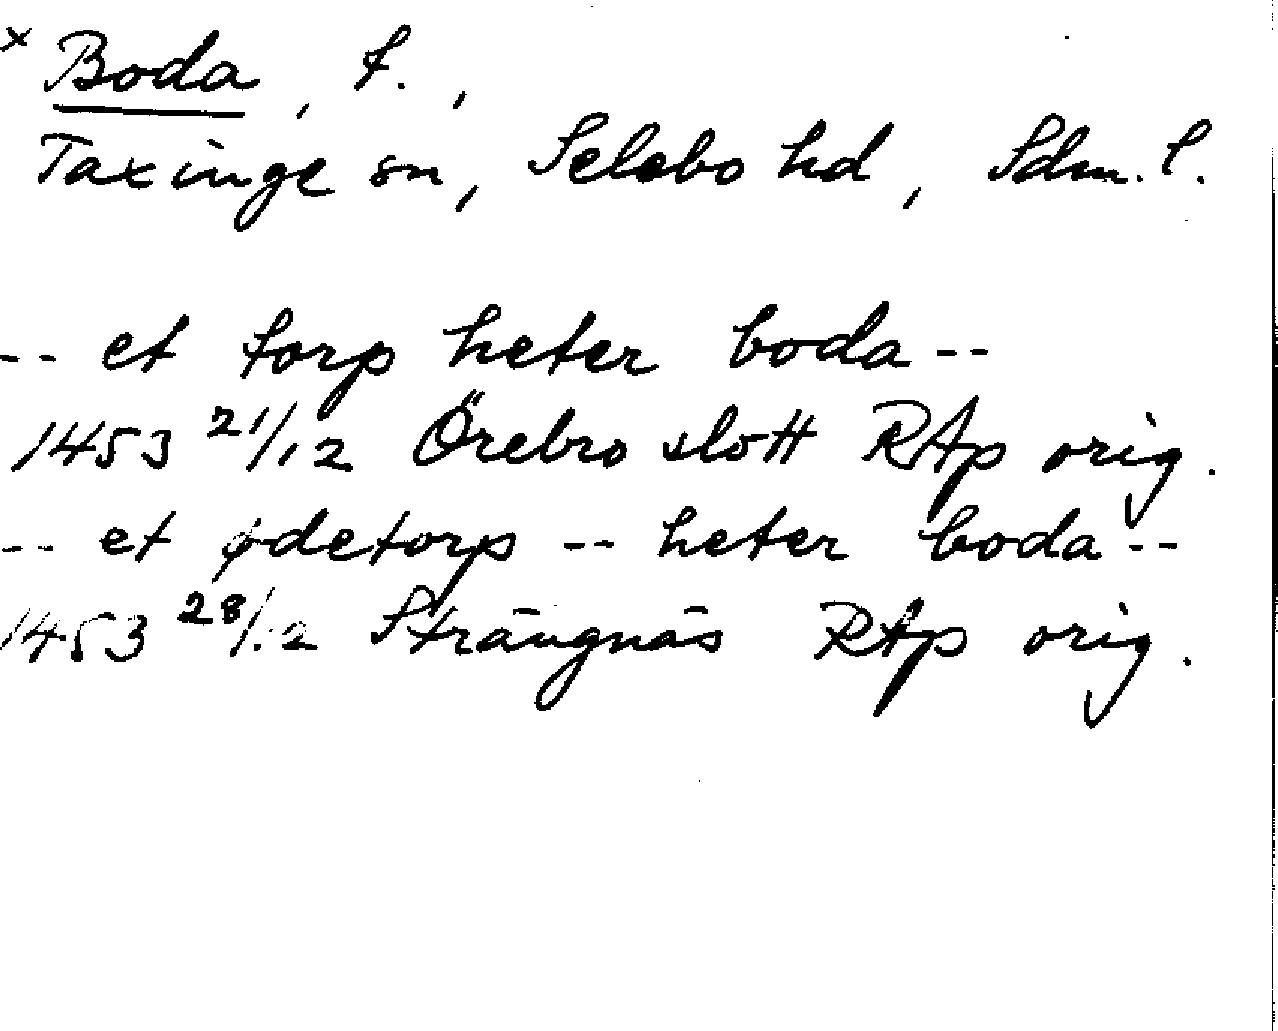 x Boda, t.,
Taxinge sn, Selebo hd, Sdm. l.
-- et torp heter boda --
1453 21/12 Örebro slott RAp orig.
-- et ødetorp -- heter boda --
1453 28/12 Strängnäs RAp orig.